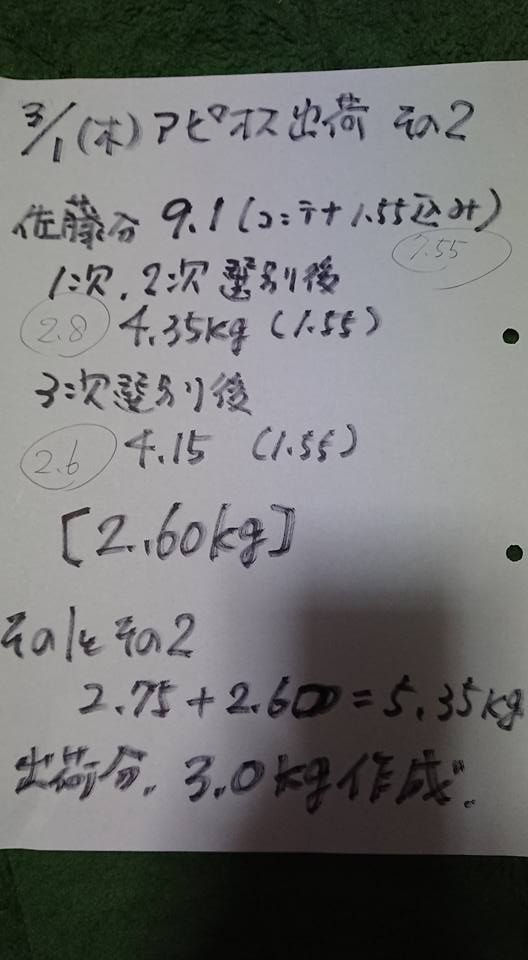 3/1(木)アピオス出荷 その2
佐藤分 9.1(コンテナ1.55込み)
7.55
1次、2次選別後
2.8 4.35kg (1.55)
3次選別後
2.6 4.15 (1.55)
[2.60kg]
その1とその2
2.75+2.600=5.35kg
出荷分、3.0kg作成。